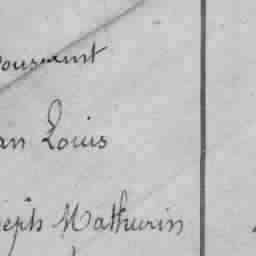 an Louis
seph Mathurin